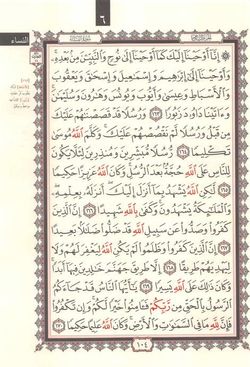 ٦
النساء
۞ إِنَّا أَوْحَيْنَا إِلَيْكَ كَمَا أَوْحَيْنَا إِلَىٰ نُوحٍ وَالنَّبِيِّينَ مِنْ بَعْدِهِ ۚ
وَأَوْحَيْنَا إِلَىٰ إِبْرَاهِيمَ وَإِسْمَاعِيلَ وَإِسْحَاقَ وَيَعْقُوبَ
وَالْأَسْبَاطِ وَعِيسَىٰ وَأَيُّوبَ وَيُونُسَ وَهَارُونَ وَسُلَيْمَانَ ۚ
وَآتَيْنَا دَاوُودَ زَبُورًا ﴿١٦٣﴾ وَرُسُلًا قَدْ قَصَصْنَاهُمْ عَلَيْكَ
مِنْ قَبْلُ وَرُسُلًا لَمْ نَقْصُصْهُمْ عَلَيْكَ ۚ وَكَلَّمَ اللَّهُ مُوسَىٰ
تَكْلِيمًا ﴿١٦٤﴾ رُسُلًا مُبَشِّرِينَ وَمُنْذِرِينَ لِئَلَّا يَكُونَ
لِلنَّاسِ عَلَى اللَّهِ حُجَّةٌ بَعْدَ الرُّسُلِ ۚ وَكَانَ اللَّهُ عَزِيزًا حَكِيمًا
﴿١٦٥﴾ لَٰكِنِ اللَّهُ يَشْهَدُ بِمَا أَنْزَلَ إِلَيْكَ ۖ أَنْزَلَهُ بِعِلْمِهِ ۖ
وَالْمَلَائِكَةُ يَشْهَدُونَ ۚ وَكَفَىٰ بِاللَّهِ شَهِيدًا ﴿١٦٦﴾ إِنَّ الَّذِينَ
كَفَرُوا وَصَدُّوا عَنْ سَبِيلِ اللَّهِ قَدْ ضَلُّوا ضَلَالًا بَعِيدًا
﴿١٦٧﴾ إِنَّ الَّذِينَ كَفَرُوا وَظَلَمُوا لَمْ يَكُنِ اللَّهُ لِيَغْفِرَ لَهُمْ وَلَا
لِيَهْدِيَهُمْ طَرِيقًا ﴿١٦٨﴾ إِلَّا طَرِيقَ جَهَنَّمَ خَالِدِينَ فِيهَا أَبَدًا ۚ
وَكَانَ ذَٰلِكَ عَلَى اللَّهِ يَسِيرًا ﴿١٦٩﴾ يَا أَيُّهَا النَّاسُ قَدْ جَاءَكُمُ
الرَّسُولُ بِالْحَقِّ مِنْ رَبِّكُمْ فَآمِنُوا خَيْرًا لَكُمْ ۚ وَإِنْ تَكْفُرُوا
فَإِنَّ لِلَّهِ مَا فِي السَّمَاوَاتِ وَالْأَرْضِ ۚ وَكَانَ اللَّهُ عَلِيمًا حَكِيمًا ﴿١٧٠﴾
١٠٤